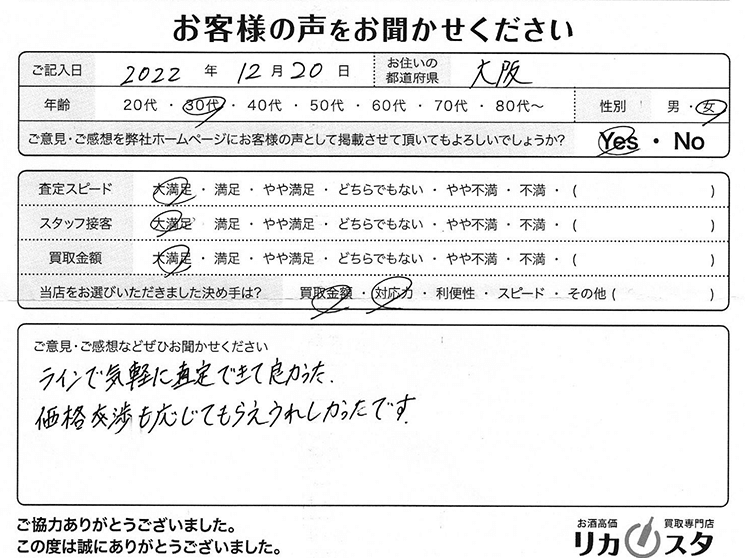 お客様の声をお聞かせください
ご記入日 2022 年 12 月 20 日 お住いの都道府県 大阪
年齢 20代 ・ 30代 ・ 40代 ・ 50代 ・ 60代 ・ 70代 ・ 80代〜 性別 男 ・ 女
ご意見・ご感想を弊社ホームページにお客様の声として掲載させて頂いてもよろしいでしょうか? Yes ・ No
査定スピード 大満足 ・ 満足 ・ やや満足 ・ どちらでもない ・ やや不満 ・ 不満 ・ ( )
スタッフ接客 大満足 ・ 満足 ・ やや満足 ・ どちらでもない ・ やや不満 ・ 不満 ・ ( )
買取金額 大満足 ・ 満足 ・ やや満足 ・ どちらでもない ・ やや不満 ・ 不満 ・ ( )
当店をお選びいただきました決め手は? 買取金額 ・ 対応力 ・ 利便性 ・ スピード ・ その他 ( )
ご意見・ご感想などぜひお聞かせください
ラインで気軽に査定できて良かった.
価格交渉も応じてもらえうれしかったです.
ご協力ありがとうございました。
この度は誠にありがとうございました。
お酒高価 買取専門店
リカスタ